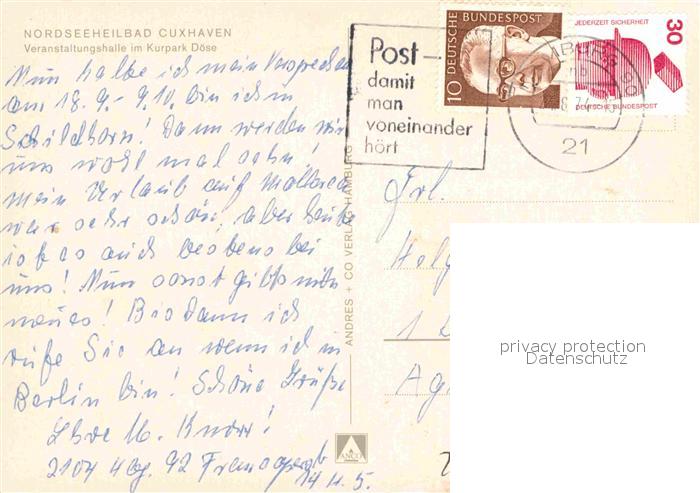 NORDSEEHEILBAD CUXHAVEN
Veranstaltungshalle im Kurpark Döse
Nun halte ich mein Versprechen
am 18.9.-9.10. bin ich in
Schildhorn! Dann werden wir
uns wohl mal sehn!
Mein Urlaub auf Mallorca
war sehr schön, aber heute
ist es auch bestens bei
uns! Nun sonst gibts nichts
neues! Bis dann ich
rufe Sie an wenn ich in
Berlin bin! Schöne Grüße
Ihre M. Knorr!
2104 Hbg. 92
ANDRES + CO VERLAG HAMBURG
ANCO
Post-
damit
man
voneinander
hört
DEUTSCHE BUNDESPOST
10
JEDERZEIT SICHERHEIT
30
DEUTSCHE BUNDESPOST
21
Frl.
Helg
1
privacy protection
Datenschutz